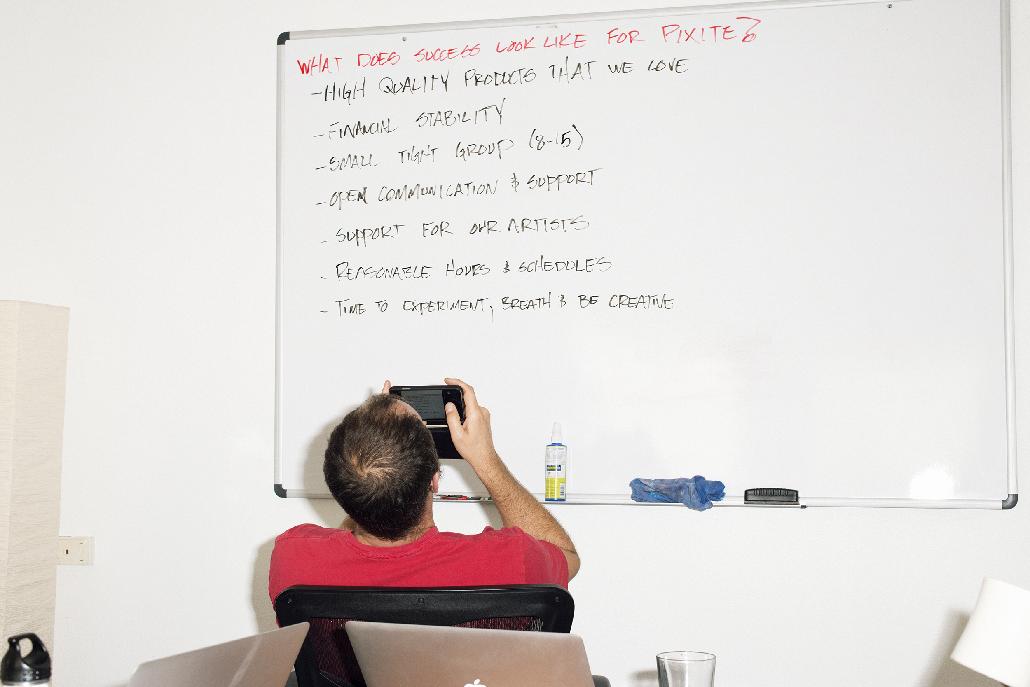 WHAT DOES SUCCESS LOOK LIKE FOR PIXITE?
- HIGH QUALITY PRODUCTS THAT WE LOVE
- FINANCIAL STABILITY
- SMALL TIGHT GROUP (8-15)
- OPEN COMMUNICATION & SUPPORT
- SUPPORT FOR OUR ARTISTS
- REASONABLE HOURS & SCHEDULES
- TIME TO EXPERIMENT, BREATH & BE CREATIVE